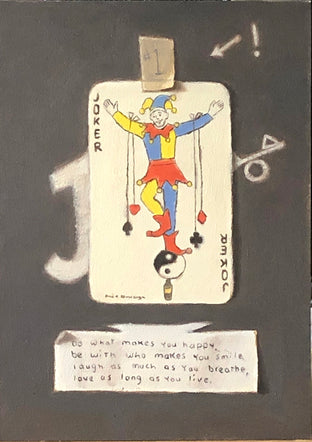 #1
!
JOKER
J
%
JOKER
Do what makes you happy,
be with who makes you smile,
laugh as much as you breathe,
love as long as you live.